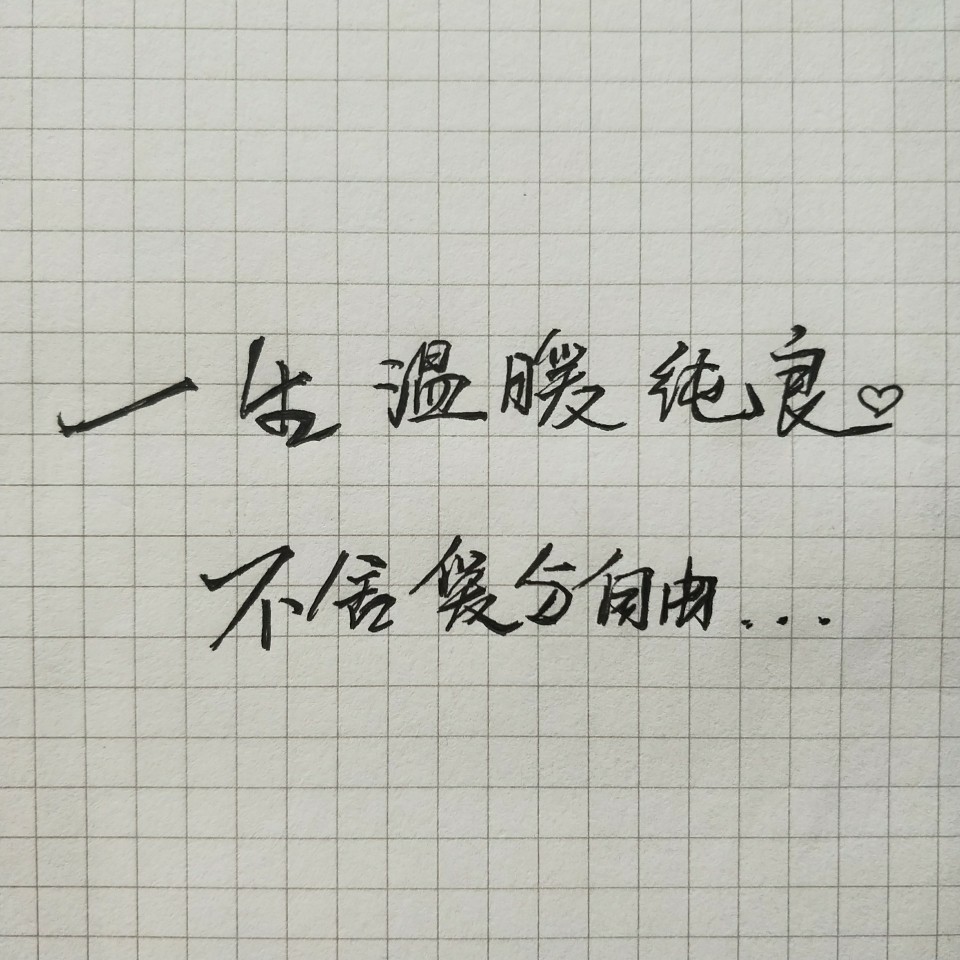 一生温暖纯良♡
不舍爱与自由...